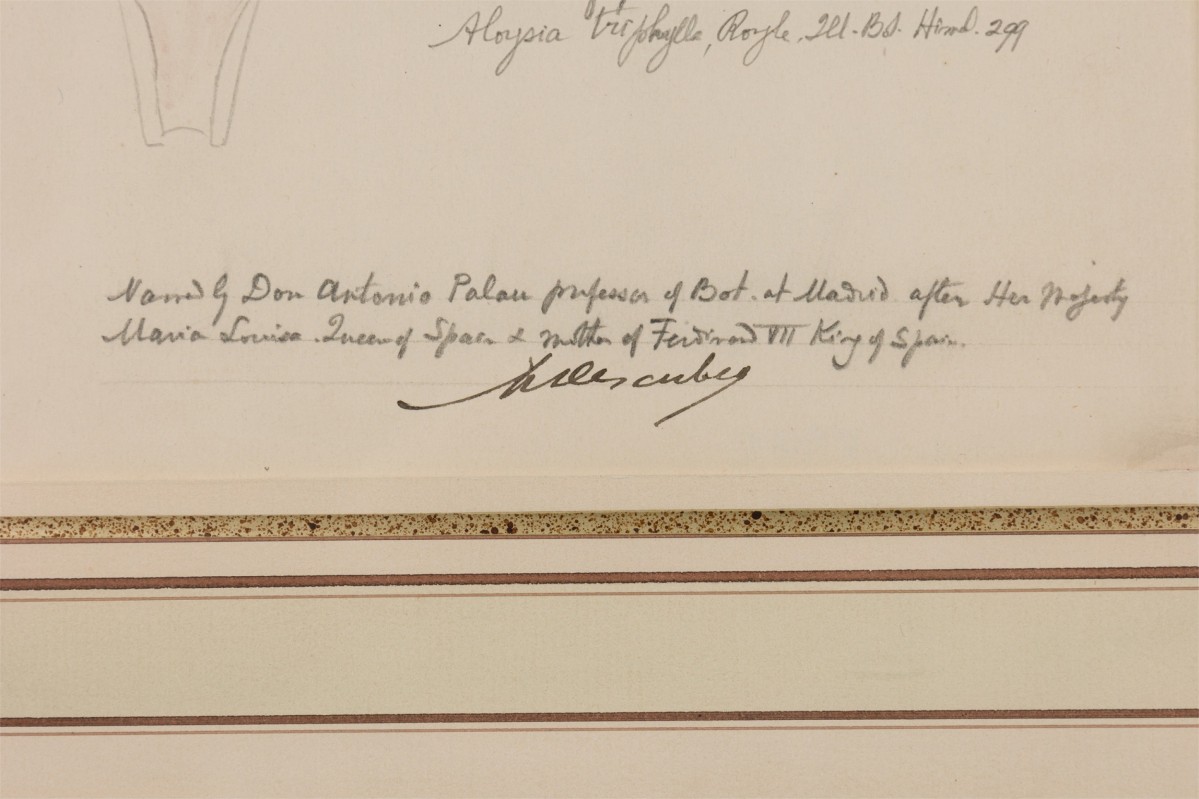 Aloysia triphylla, Royle, Ill. Bot. Himal. 299
Named by Don Antonio Palau professor of Bot. at Madrid after Her Majesty
Maria Louisa. Queen of Spain & mother of Ferdinand VII King of Spain.